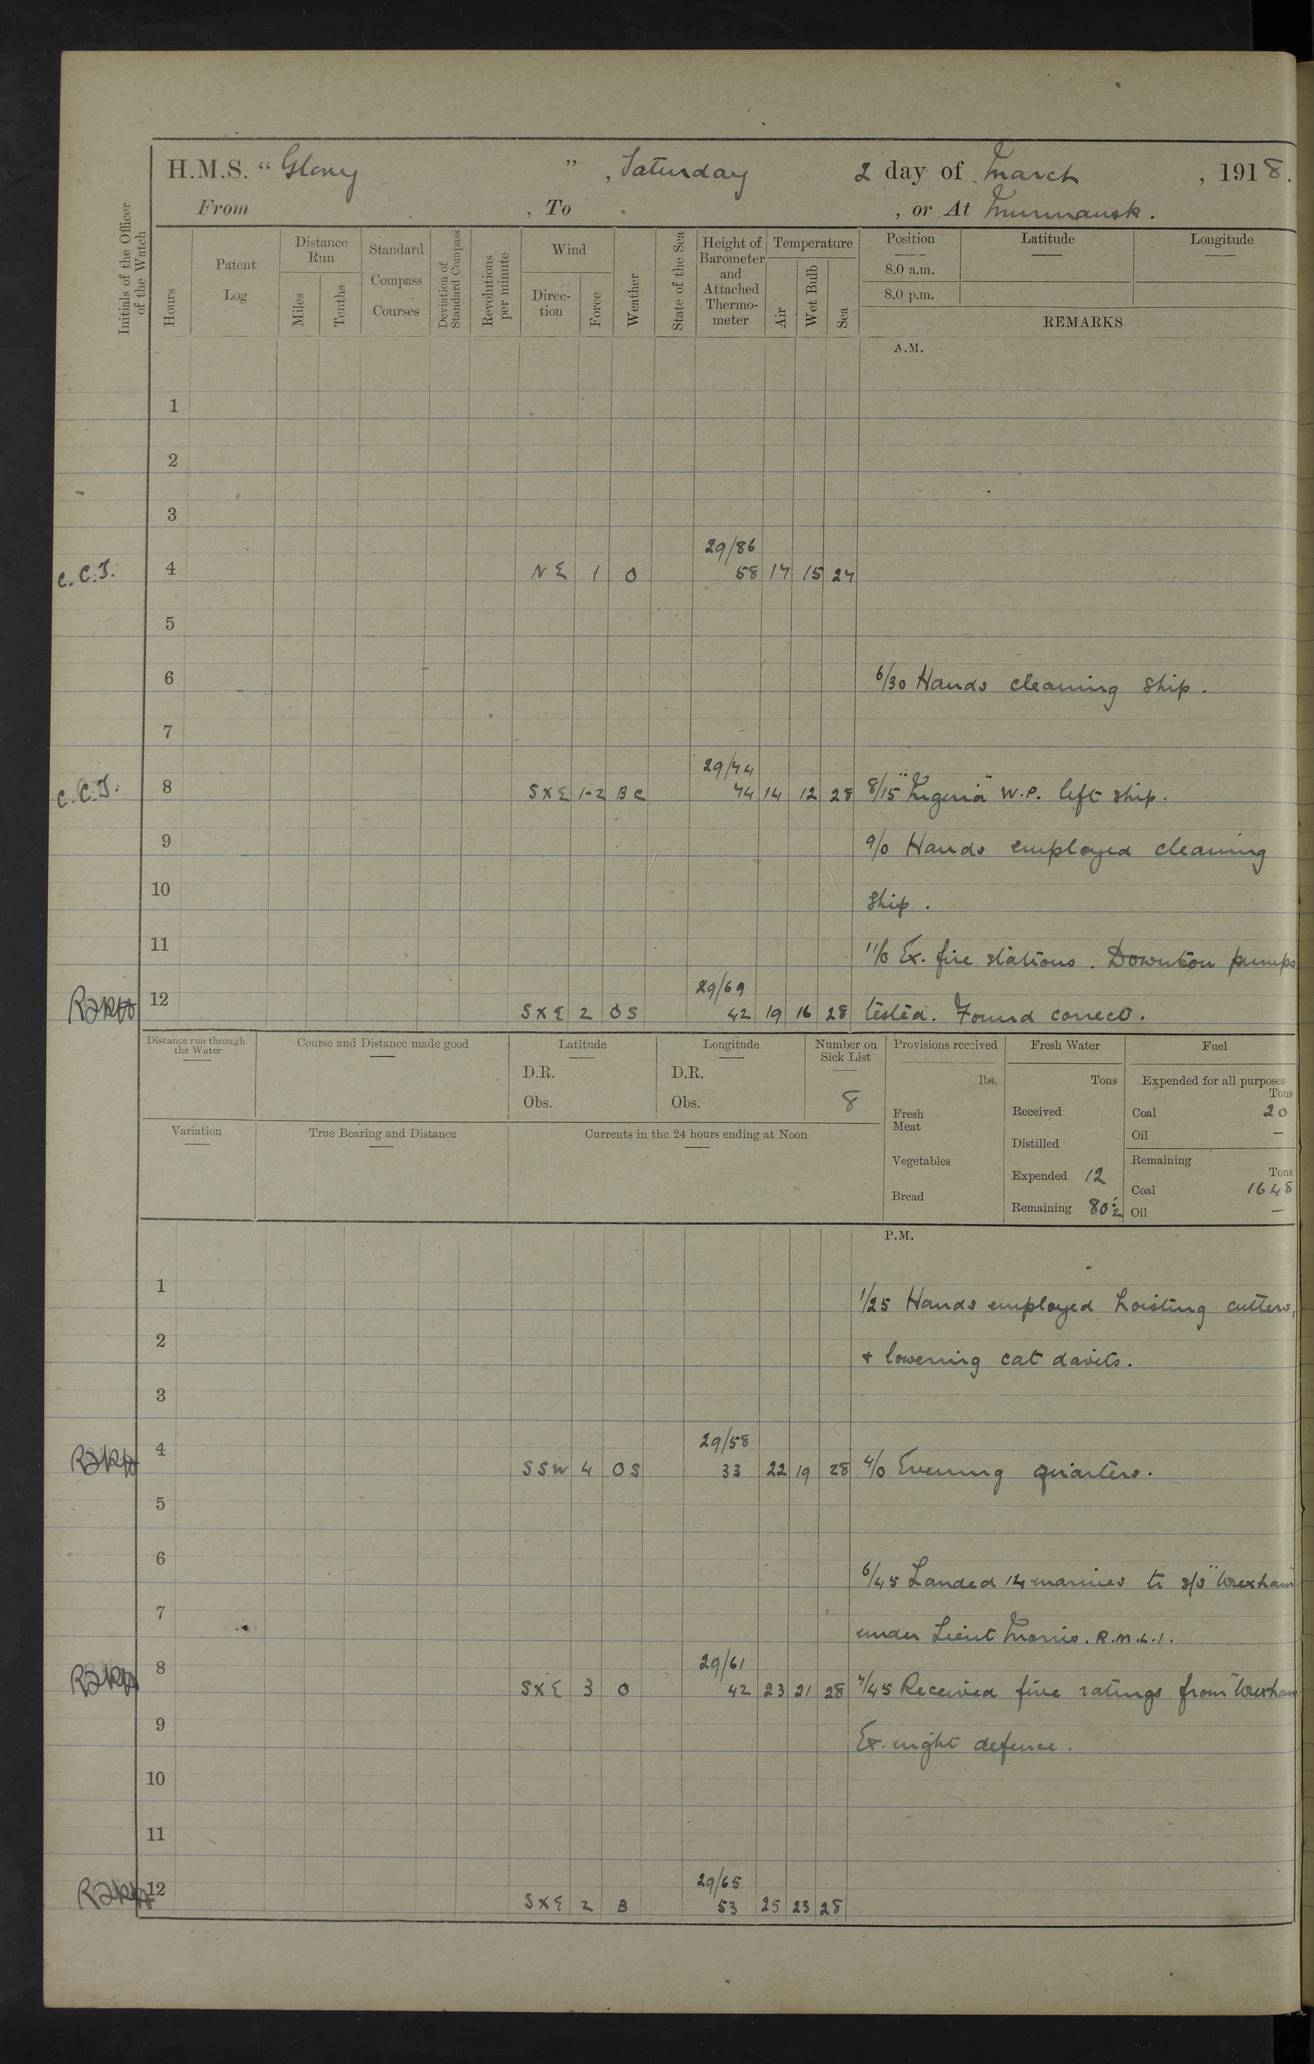 H.M.S. "Glory", Saturday 2 day of March, 1918.
From , To , or At Murmansk.
Initials of the Officer of the Watch
Hours
Patent Log
Distance Run
Miles
Tenths
Standard Compass Courses
Deviation of Standard Compass
Revolutions per minute
Wind
Direction
Force
Weather
State of the Sea
Height of Barometer and Attached Thermometer
Temperature
Air
Wet Bulb
Sea
Position
8.0 a.m.
8.0 p.m.
Latitude
Longitude
REMARKS
A.M.
1
2
3
29/86
C.C.J. 4 NE 1 O 58 17 15 27
5
6 6/30 Hands cleaning ship.
7
29/74
C.C.J. 8 SXE 1-2 BC 74 14 12 28 8/15 "Nigeria" W.P. left ship.
9 9/0 Hands employed cleaning
10 ship.
11 11/0 Ex. fire stations. Downton pumps
29/69
12 SXE 2 OS 42 19 16 28 tested. Found correct.
Distance run through the Water
Course and Distance made good
Latitude
D.R.
Obs.
Longitude
D.R.
Obs.
Number on Sick List
8
Variation
True Bearing and Distance
Currents in the 24 hours ending at Noon
Provisions received
lbs.
Fresh Meat
Vegetables
Bread
Fresh Water
Tons
Received
Distilled
Expended 12
Remaining 80½
Fuel
Expended for all purposes
Tons
Coal 20
Oil —
Remaining
Tons
Coal 1648
Oil —
P.M.
1 1/25 Hands employed hoisting cutters,
2 + lowering cat davits.
3
29/58
4 SSW 4 OS 33 22 19 28 4/0 Evening quarters.
5
6 6/45 Landed 14 marines to s/s "Wexham"
7 under Lieut Morris. R.M.L.I.
29/61
8 SXE 3 O 42 23 21 28 7/45 Received five ratings from "Wexham
9 Ex. night defence.
10
11
29/65
12 SXE 2 B 53 25 23 28